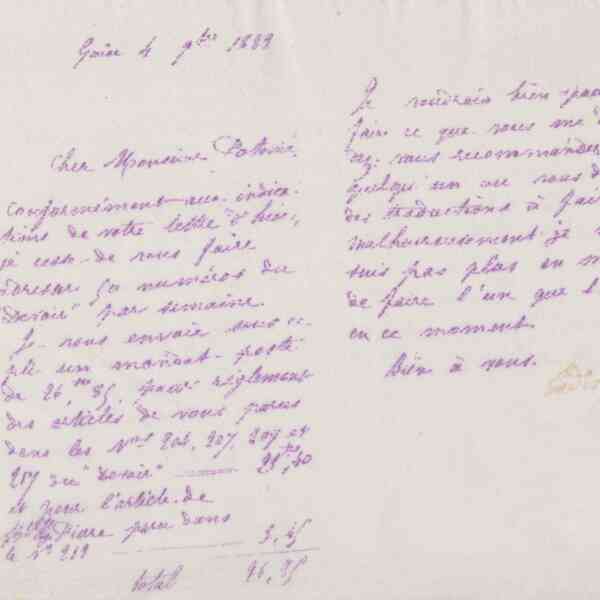 Guise 4 9bre 1882
Cher Monsieur
Conformément aux indica-
tions de votre lettre d'hier,
je cesse de vous faire
adresser 50 numéros du
"Devoir" par semaine.
Je vous envoie sous ce
pli un mandat-poste
de 26, 85, pour règlement
des articles de vous parus
dans les Nos 204, 207, 209 et
217 du "Devoir" 23, 40
et pour l'article de
Piare paru dans
le No 219 3,45
total 26,85
Je voudrais bien pouv
faire ce que vous me d
ez, vous recommander
quelqu'un ou vous d
des traductions à fair
malheureusement je n
suis pas plus en m
de faire l'un que l
en ce moment.
Bien à vous.